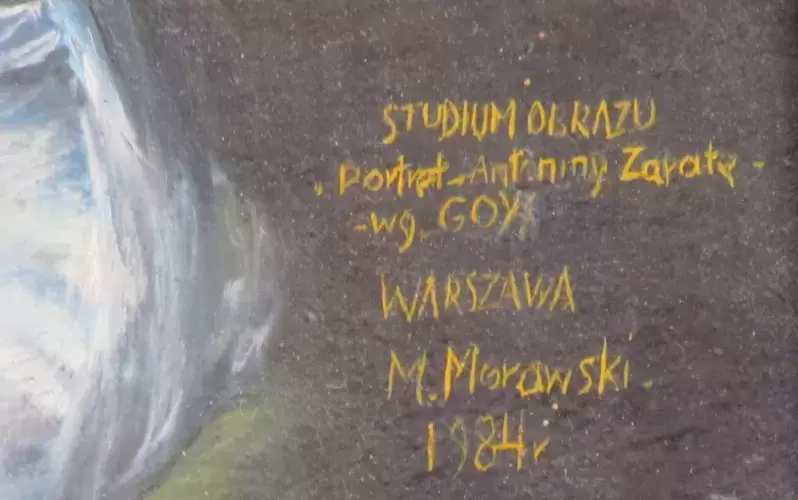 STUDIUM OBRAZU
„Portret - Antoniny Zarate -
- wg. GOYI
WARSZAWA
M. Morawski.
1984 r